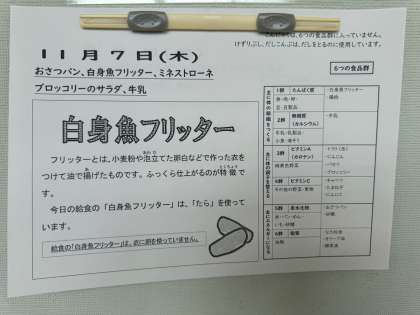 こんだては、6つの食品群に入っていません。
けずりぶし、だしこんぶは、だしをとるのに使用しています。
11月7日(木)
おさつパン、白身魚フリッター、ミネストローネ
ブロッコリーのサラダ、牛乳
白身魚フリッター
フリッターとは、小麦粉や泡立てた卵白などで作った衣を
つけて油で揚げたものです。ふっくら仕上がるのが特徴で
す。
今日の給食の「白身魚フリッター」は、「たら」を使って
います。
給食の「白身魚フリッター」は、卵は使っていません。
6つの食品群
1群 たんぱく質
白身魚フリッター
2群 無機質
(カルシウム)
牛乳
3群 ビタミンA
(カロテン)
緑黄色野菜
トマト(缶)
にんじん
パセリ
ブロッコリー
4群 ビタミンC
その他の野菜・果物
キャベツ
たまねぎ
にんにく
5群 炭水化物
おさつパン
砂糖
6群 脂質
油脂
なたね油
オリーブ油